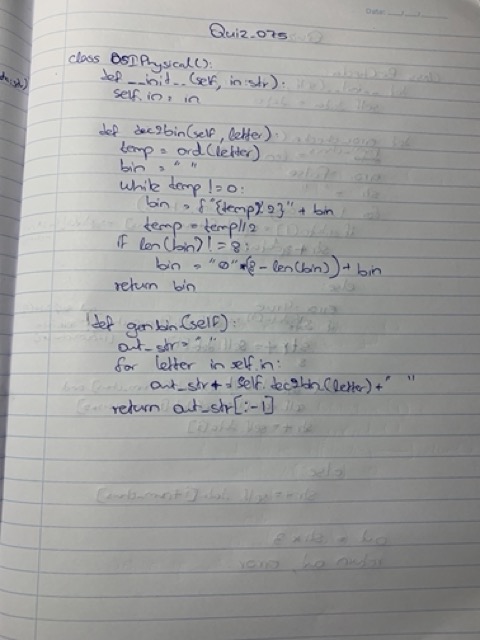 Quiz_075
class OSIPhysical():
def __init__(self, in:str):
self.in = in
def dec2bin(self, letter):
temp = ord(letter)
bin = " "
while temp != 0:
bin = f"{temp%2}" + bin
temp = temp//2
if len(bin) != 8:
bin = "0"*(8-len(bin)) + bin
return bin
def genbin(self):
out_str = " "
for letter in self.in:
out_str += self.dec2bin(letter)+" "
return out_str[:-1]